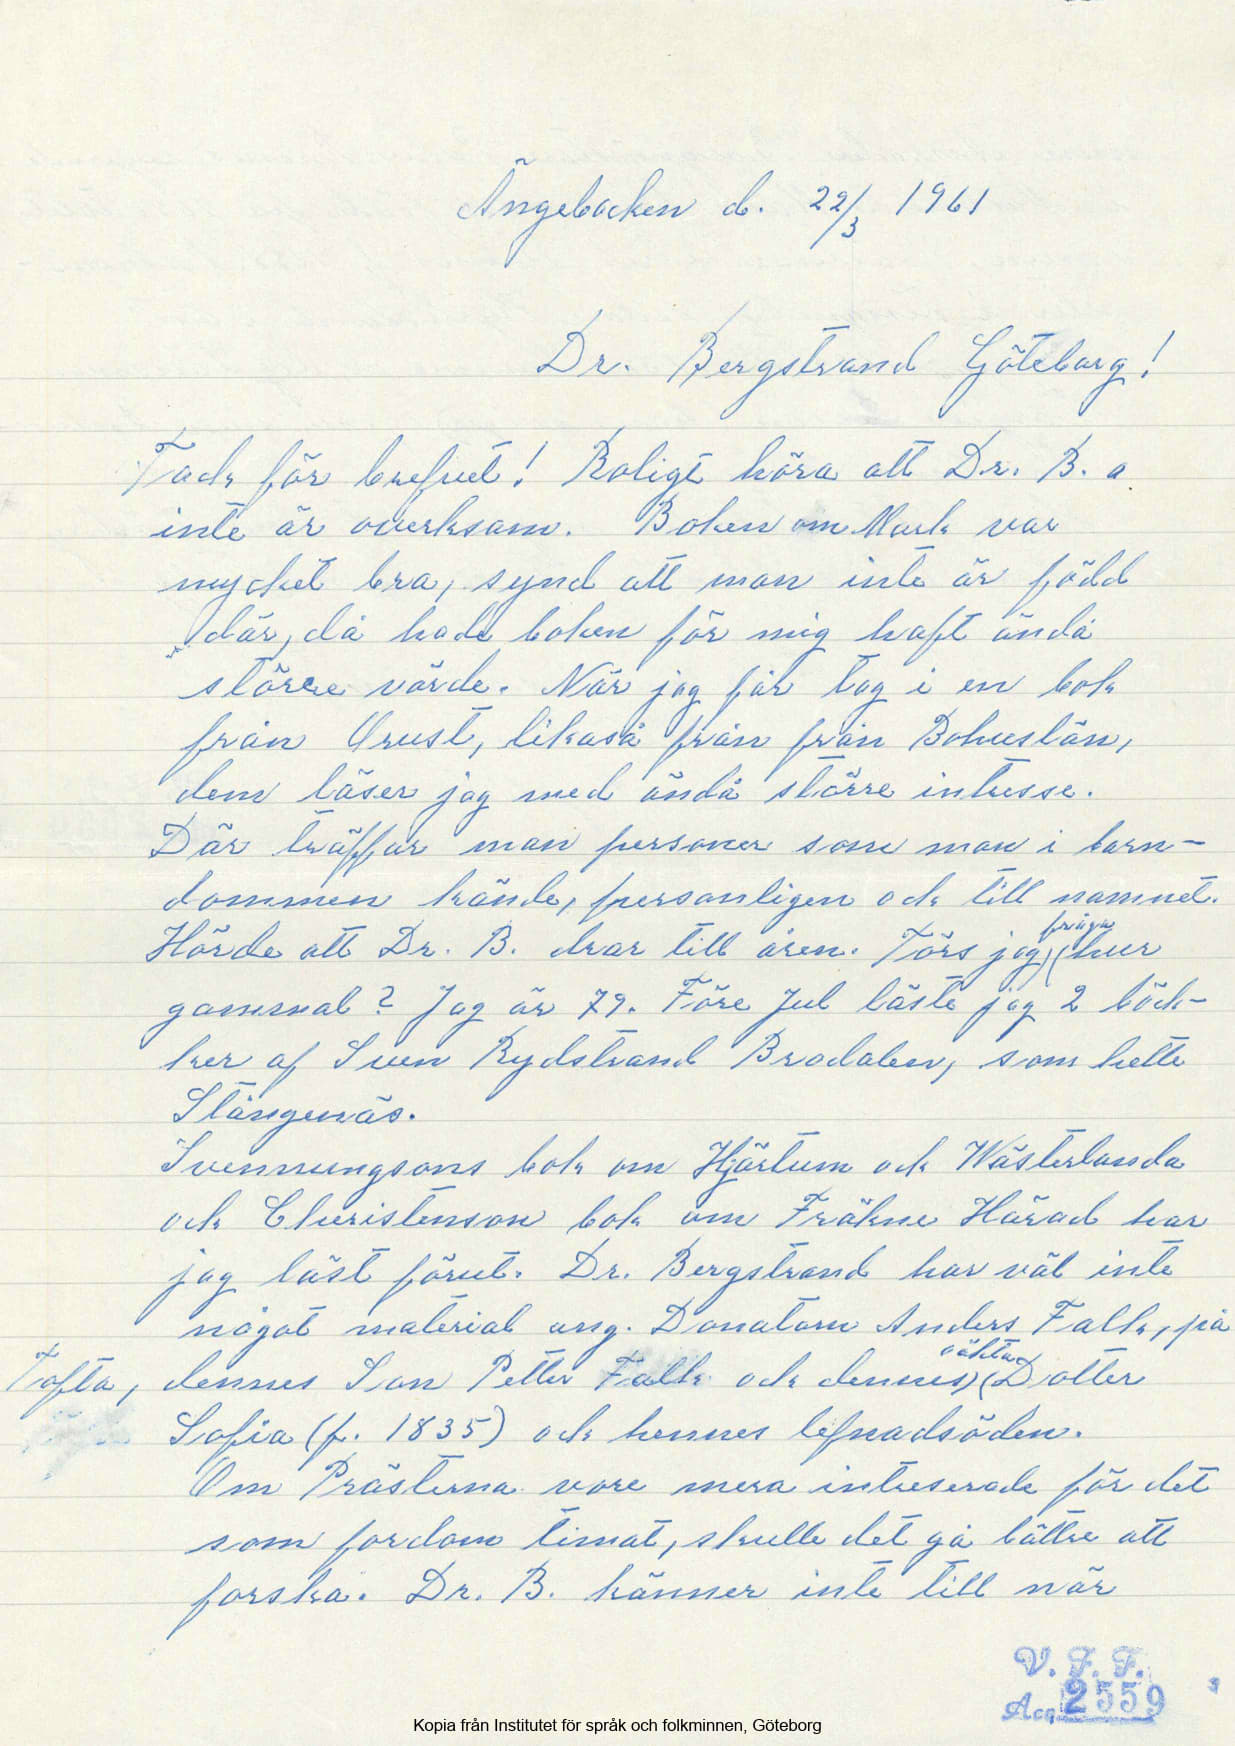 Ängebacken d. 22/3 1961
Dr. Bergstrand Göteborg!
Tack för brefvet! Roligt höra att Dr. B. a
inte är overksam. Boken om Mark var
mycket bra, synd att man inte är född
där, då hade boken för mig haft ändå
större värde. När jag får tag i en bok
från Orust, likaså från från Bohuslän,
dem läser jag med ändå större intresse.
Där träffar man personer som man i barn-
dommen kände, personligen och till namnet.
Hörde att Dr. B. drar till åren. Törs jag fråga hur
gammal? Jag är 79. Före Jul läste jag 2 böck-
ker af Sven Rydstrand Brodalen, som hette
Stångenäs.
Svennungsons bok om Hjärtum och Wästerlanda
och Christenson bok om Fräkne Härad har
jag läst förut. Dr. Bergstrand har väl inte
något material ang. Donatorn Anders Falk, på
Tofta, dennes Son Petter Falk och dennes oäkta Dotter
Sofia (f. 1835) och hennes lefnadsöden.
Om Prästerna vore mera intreserade för det
som fordom timat, skulle det gå bättre att
forska. Dr. B. känner inte till när
V. F. F.
Acq. 2559
Kopia från Institutet för språk och folkminnen, Göteborg